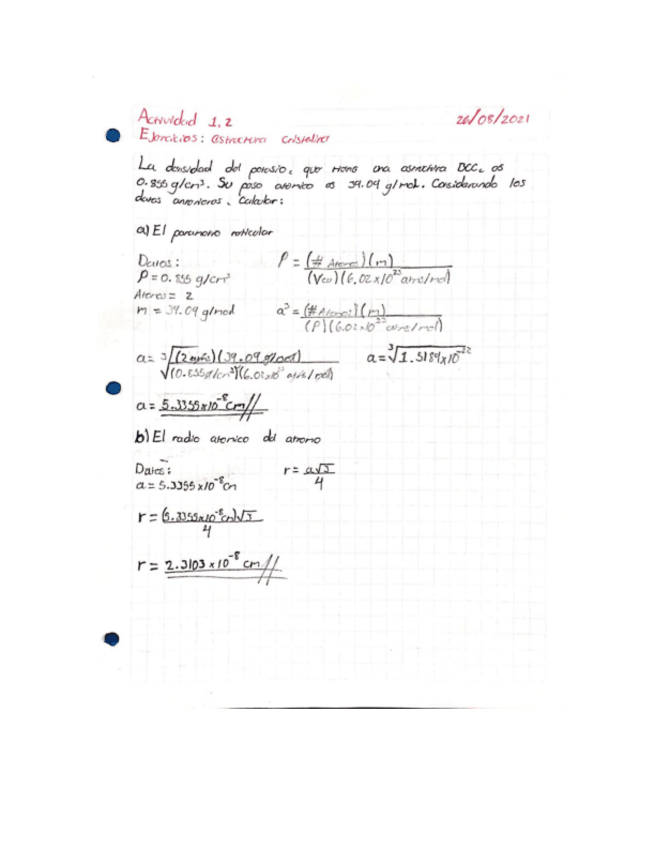 Actividad 1.2
26/08/2021
Ejercicios: estructura cristalina
La densidad del potasio, que tiene una estructura BCC, es
0.855 g/cm³. Su peso atomico es 39.09 g/mol. Considerando los
datos anteriores, Calcular:
a) El parametro reticular
Datos:
ρ = (# Atomos)(m) / (Vcu)(6.02x10²³ atms/mol)
ρ = 0.855 g/cm³
Atomos = 2
m = 39.09 g/mol
a³ = (# Atomos)(m) / (ρ)(6.02x10²³ atms/mol)
a = ³√(2 atms)(39.09 g/mol) / (0.855g/cm³)(6.02x10²³ atms/mol)
a = ³√1.5189x10⁻²²
a = 5.3355x10⁻⁸ cm//
b) El radio atomico del atomo
Datos:
r = a√3 / 4
a = 5.3355 x10⁻⁸ cm
r = (5.3355x10⁻⁸cm)√3 / 4
r = 2.3103 x 10⁻⁸ cm//